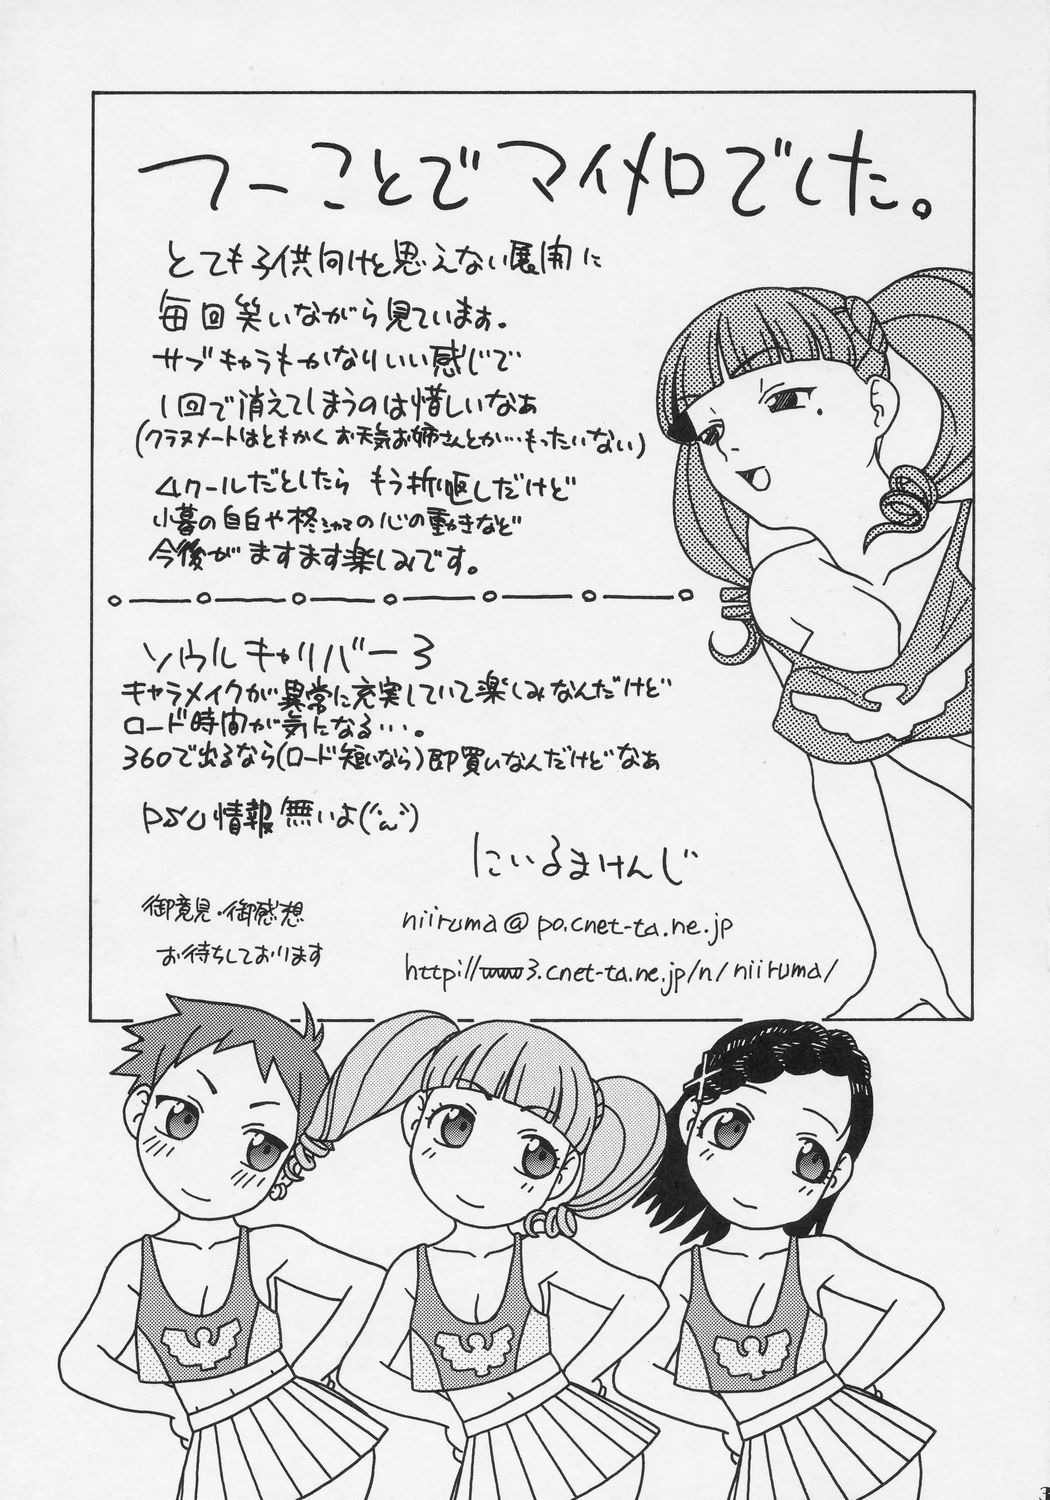 つーことでマイメロでした。
とても子供向けと思えない展開に
毎回笑いながら見ています。
サブキャラもかなりいい感じで
1回で消えてしまうのは惜しいなあ
(クラスメートはともかく お天気お姉さんとか…もったいない)
4クールだとしたら もう折り返しだけど
小暮の自白や柊シャマの心の動きなど
今後がますます楽しみです。
ソウルキャリバー3
キャラメイクが異常に充実していて楽しみなんだけど
ロード時間が気になる…。
360で出るなら(ロード短いなら)即買いなんだけどなぁ
PSU情報無いよ
にいるまけんじ
御意見・御感想
お待ちしております
niiruma@po.cnet-ta.ne.jp
http://www3.cnet-ta.ne.jp/n/niiruma/